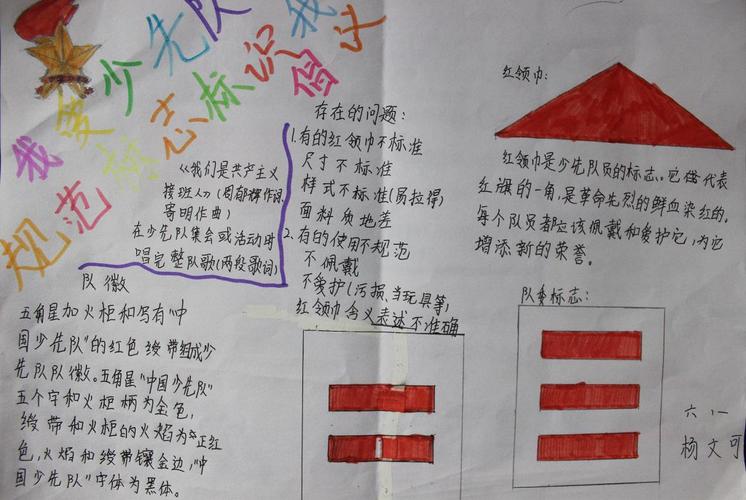 我爱少先队 我
爱标志标识倡计
规范
《我们是共产主义
接班人》(周郁辉作词
寄明作曲)
在少先队集会或活动时
唱完整队歌(两段歌词)
队徽
五角星加火柜和写有"中
国少先队"的红色绶带组成少
先队队徽。五角星"中国少先队"
五个字和火柜柄为金色,
绶带和火柜的火焰为"正红
色,火焰和绶带镶金边,"中
国少先队"字体为黑体。
存在的问题:
1.有的红领巾不标准
尺寸不标准
样式不标准(易拉得)
面料质地差
2.有的使用不规范
不佩戴
不爱护(污损、当玩具等)
红领巾含义表述不准确
红领巾:
红领巾是少先队员的标志。它代表
红旗的一角,是革命先烈的鲜血染红的,
每个队员都应该佩戴和爱护它,为它
增添新的荣誉。
队委标志:
六、一
杨文可